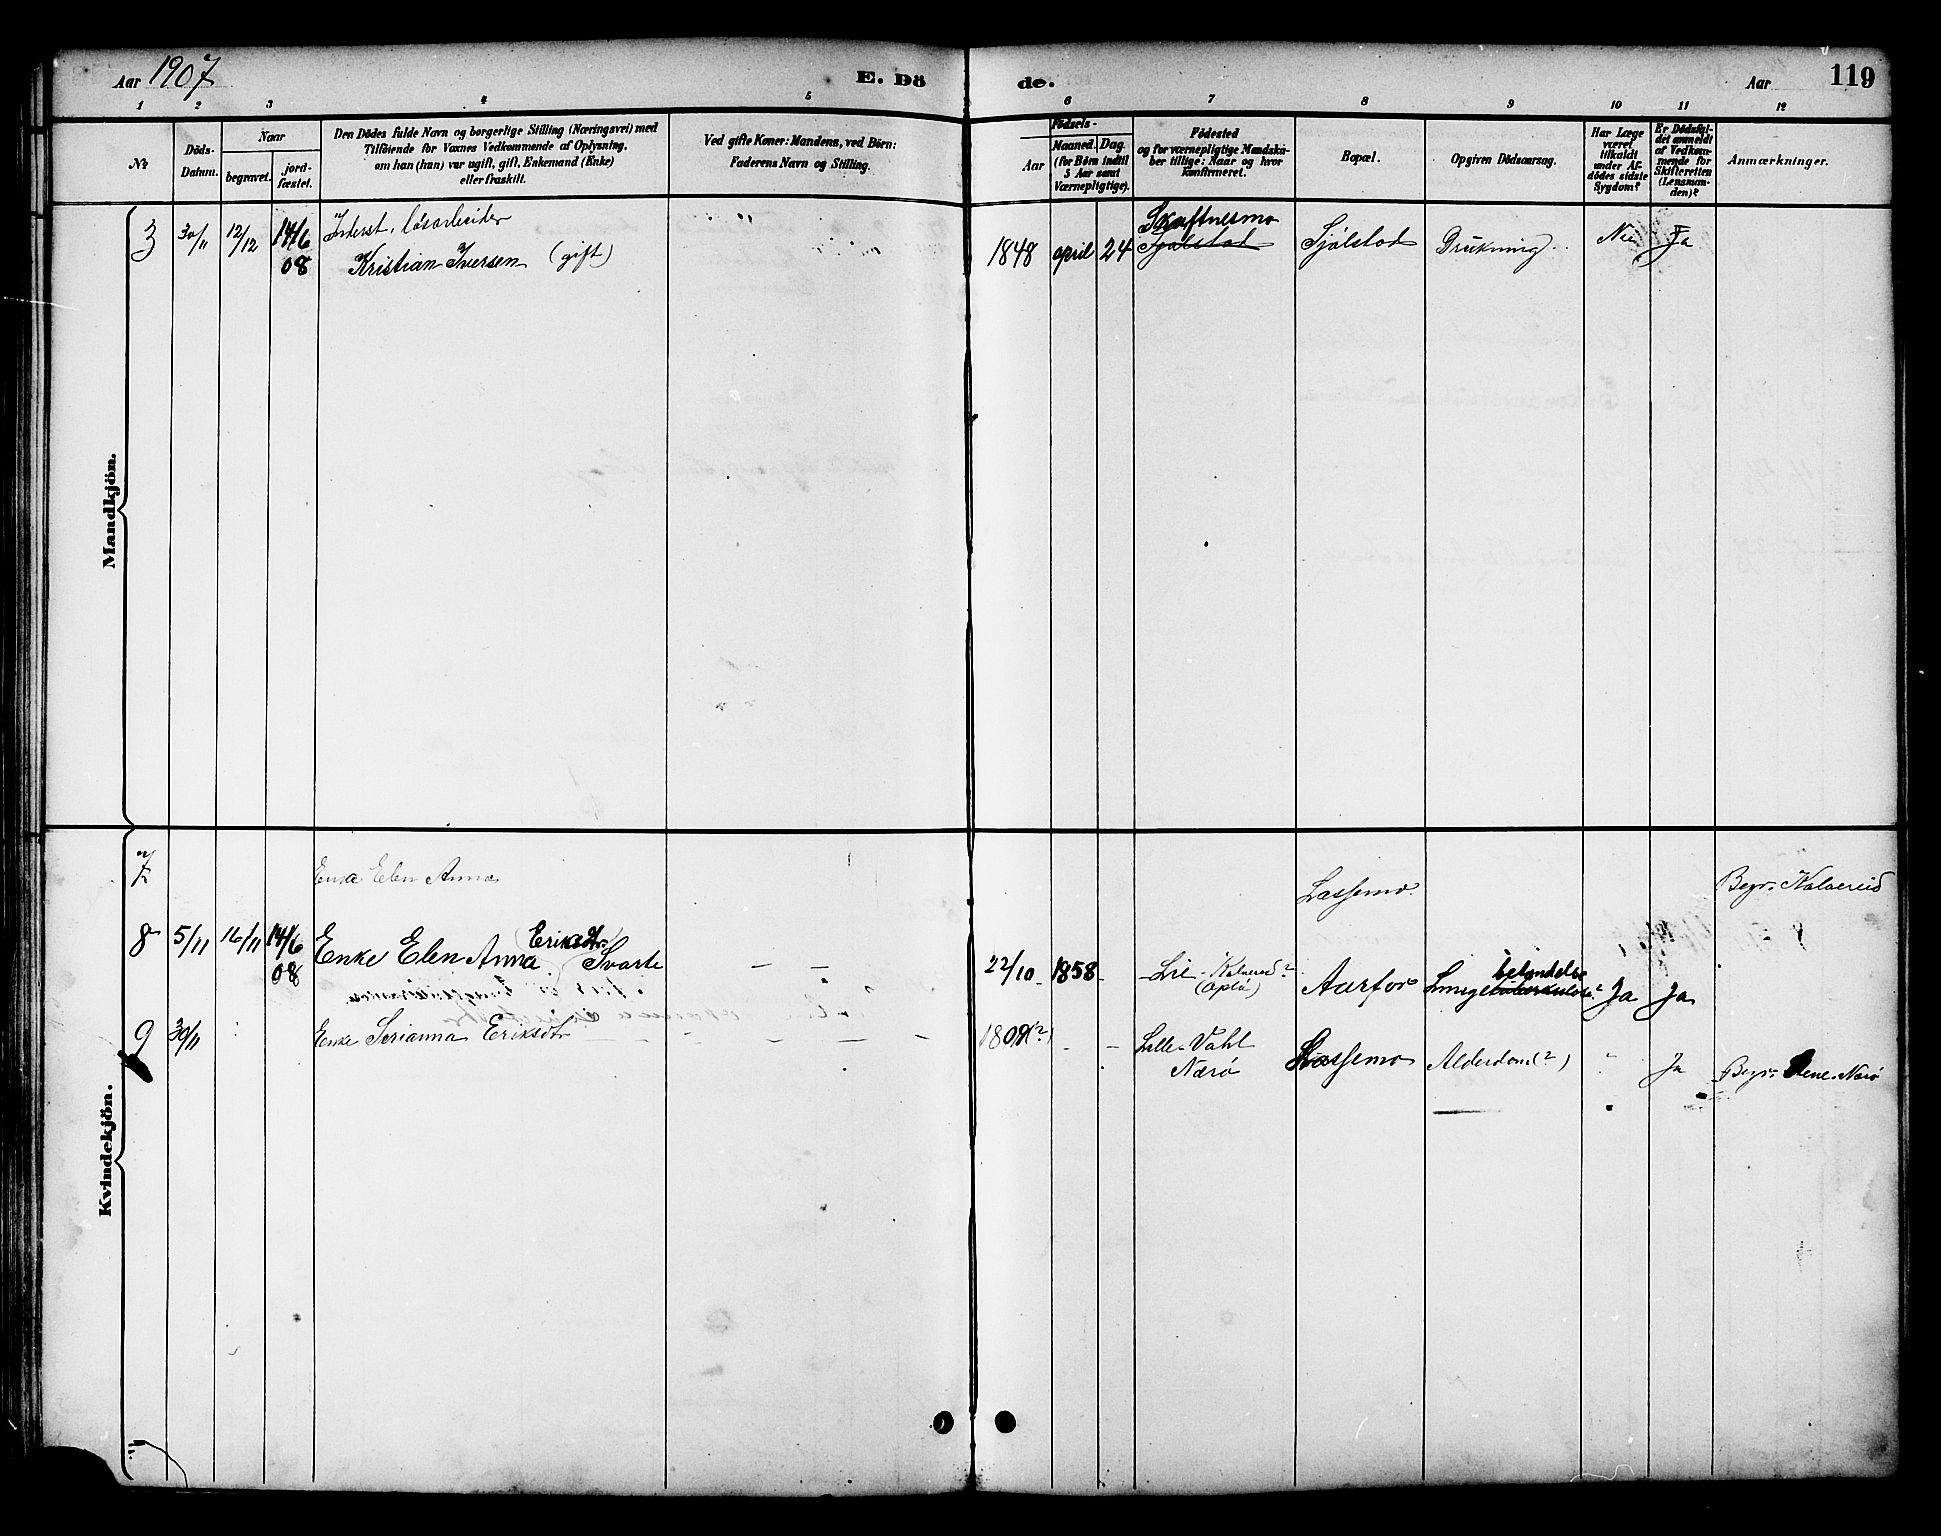 Aar 1907 E. Dö de. Aar 119
1 2 3 4 5 6 7 8 9 10 11 12
№
Döds-
Datum.
Naar
begravet.
jord-
fæstet.
Den Dödes fulde Navn og borgerlige Stilling (Næringsvei) med
Tilföiende for Voxnes Vedkommende af Oplysning,
om han (hun) var ugift, gift, Enkemand (Enke)
eller fraskilt.
Ved gifte Koner: Mandens, ved Börn:
Faderens Navn og Stilling.
Födsels-
Aar
Maaned. Dag.
(for Börn indtil
5 Aar samt
Værnepligtige).
Födested
og for værnepligtige Mandska-
ber tillige: Naar og hvor
konfirmeret.
Bopæl.
Opgiven Dödsaarsag.
Har Læge
været
tilkaldt
under Af-
dödes sidste
Sygdom?
Er Dödsfal-
det anmeldt
af Vedkom-
mende for
Skifteretten
(Lensman-
den)?
Anmærkninger.
Mandkjön.
3 30/11 12/12 14/6 Inderst, lösarbeider Skaftnesmo
08 Kristian Iversen (gift) 1848 april 24 Sjölstad Sjölstad Drukning Nei Ja
Kvindekjön.
7 Elen Anna Lassemo Begr. Kolvereid
8 5/11 16/11 14/6 Enke Elen Anna (Eriksdtr.) Svarte
08 22/10 1858 Lie - Kolvereid?
(Oplö) Aarfor Lungebetændelse? Ja Ja
9 30/11 Enke Serianna Eriksdtr 180 (?) Lille-Vahl
Nærö Lassemo Alderdom (?) " Ja Begr. Nærö